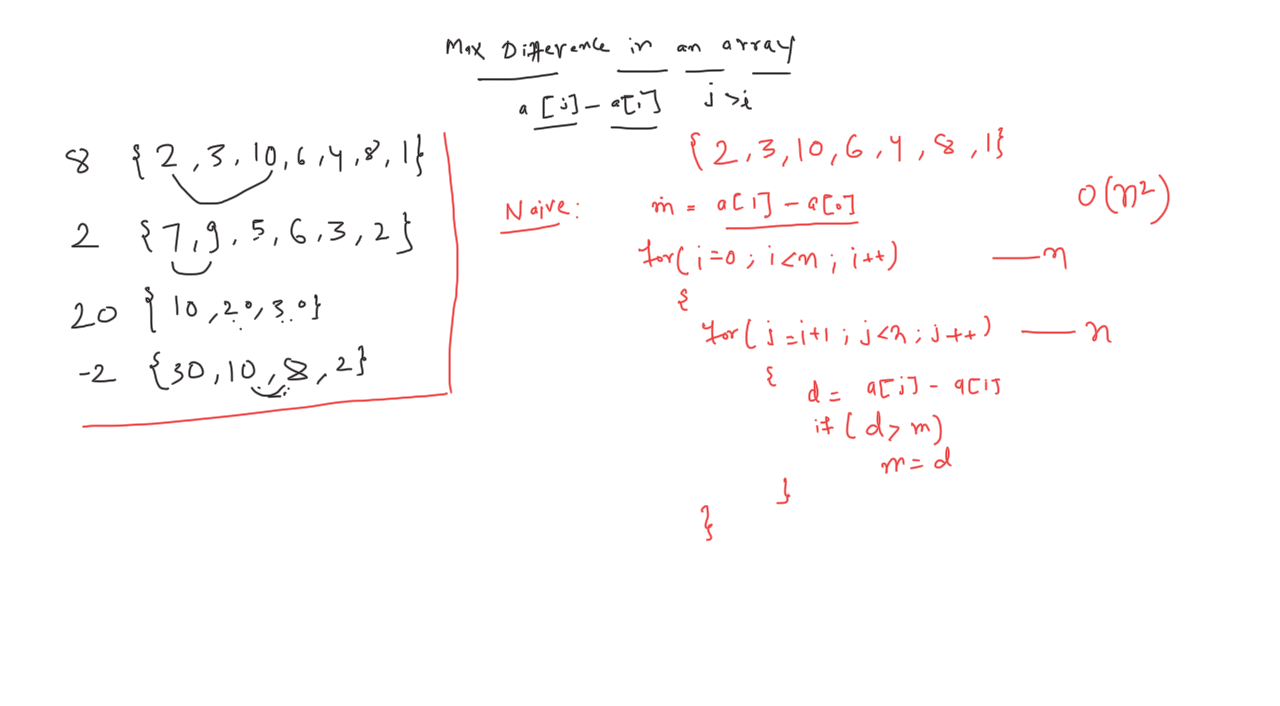 Max Difference in an array
a[j] - a[i] j > i
8 {2, 3, 10, 6, 4, 8, 1}
2 {7, 9, 5, 6, 3, 2}
20 {10, 20, 30}
-2 {30, 10, 8, 2}
{2, 3, 10, 6, 4, 8, 1}
Naive: m = a[1] - a[0] O(n²)
for(i=0; i<n; i++) — n
{
for(j=i+1; j<n; j++) — n
{
d = a[j] - a[i]
if(d > m)
m = d
}
}